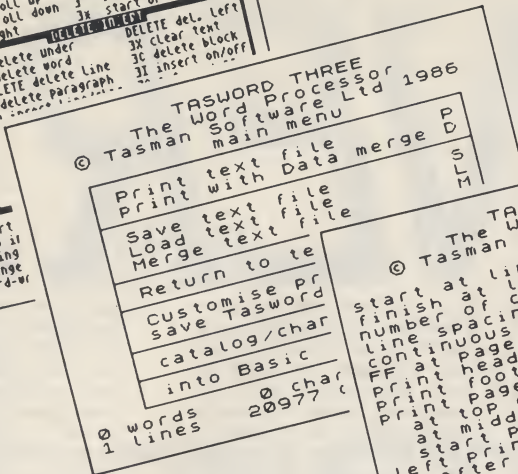 oll down
3X start
DELETE INSERT
delete under
DELETE del. left
delete word
3X clear text
ETE delete line
3C delete block
delete paragraph
3I insert on/off
TASWORD THREE
The Word Processor
© Tasman Software Ltd 1986
main menu
Print text file P
Print with Data merge D
Save text file S
Load text file L
Merge text file M
Return to te
Customise pr
save Tasword
catalog/char
into Basic
0 words 0 char
1 lines 20977 c
TA
The W
© Tasman
start at li
finish at l
number of c
line spacin
continuous
FF at page
print head
print foot
print page
at top
at midd
start p
left prin
after